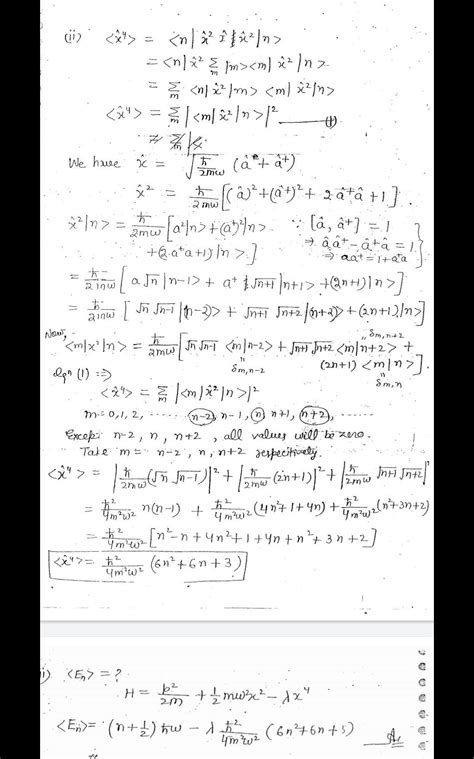 (ii) <x̂⁴> = <n| x̂² 1̂ x̂² |n>
= <n| x̂² Σ_m |m><m| x̂² |n>
= Σ_m <n| x̂² |m> <m| x̂² |n>
<x̂⁴> = Σ_m |<m| x̂² |n>|² ——— (1)
We have x̂ = √(ħ/2mω) (â + â⁺)
x̂² = ħ/2mω [(â)² + (â⁺)² + 2â⁺â + 1]
x̂²|n> = ħ/2mω [a²|n> + (a⁺)²|n> ∵ [â, â⁺] = 1
+ (2a⁺a+1)|n>] ⇒ ââ⁺ - â⁺â = 1
⇒ aa⁺ = 1 + a⁺a
= ħ/2mω [a √n |n-1> + a⁺ √n+1 |n+1> + (2n+1)|n>]
= ħ/2mω [√n √n-1 |n-2> + √n+1 √n+2 |n+2> + (2n+1)|n>]
Now, <m|x²|n> = ħ/2mω [√n √n-1 <m|n-2> + √n+1 √n+2 <m|n+2> +
(2n+1) <m|n>]
δm,n-2 δm,n+2 δm,n
Eqn (1) ⇒
<x̂⁴> = Σ_m |<m|x̂²|n>|²
m = 0, 1, 2, ...... n-2, n-1, n, n+1, n+2, .....
Except n-2, n, n+2, all values will be zero.
Take m = n-2, n, n+2 respectively.
<x̂⁴> = |ħ/2mω (√n √n-1)|² + |ħ/2mω (2n+1)|² + |ħ/2mω √n+1 √n+2|²
= ħ²/4m²ω² n(n-1) + ħ²/4m²ω² (4n²+1+4n) + ħ²/4m²ω² (n²+3n+2)
= ħ²/4m²ω² [n²-n+4n²+1+4n+n²+3n+2]
<x̂⁴> = ħ²/4m²ω² (6n²+6n+3)
i) <En> = ?
H = p²/2m + 1/2 mω²x² - λx⁴
<En> = (n+1/2) ħω - λ ħ²/4m²ω² (6n²+6n+3)